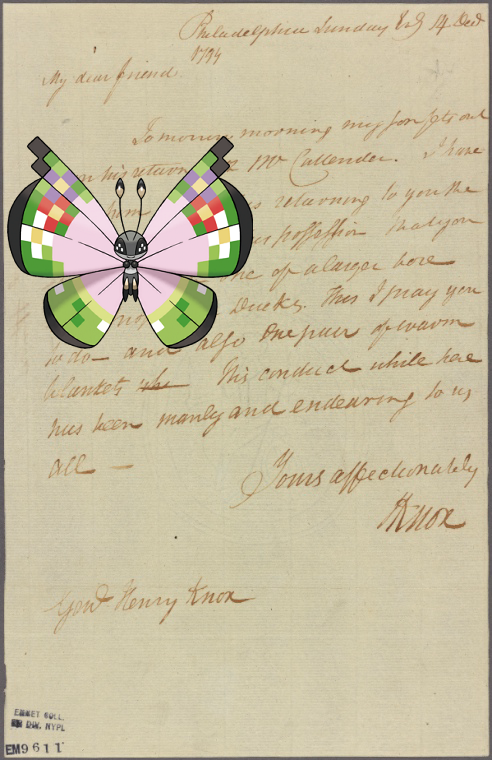 Philadelphia Sunday Evg 14 Decr
1794
My dear friend
To morrow morning my son sets out
on his return Mr Callender. I have
him returning to you the
possession that you
one of a larger bore
Ducks. This I pray you
to do — and also One pair of warm
blankets. His conduct while here
has been manly and endearing to us
all —
Yours affectionately
HKnox
Genl Henry Knox
EMMET COLL.
DIV. NYPL
EM9611